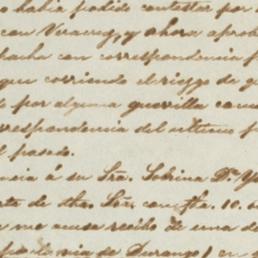 o habia podido contestar por
con Veracruz, y ahora aprob
hacha con correspondencia p
que corriendo el riezgo de q
do por alguna guerilla
respondencia del ultimo p
l pasado.
ncia á su Sra. Sobrina Da.
de dha. Sra. con fha. 10. de
me acusa recibo de una de
por la via de Durango, en